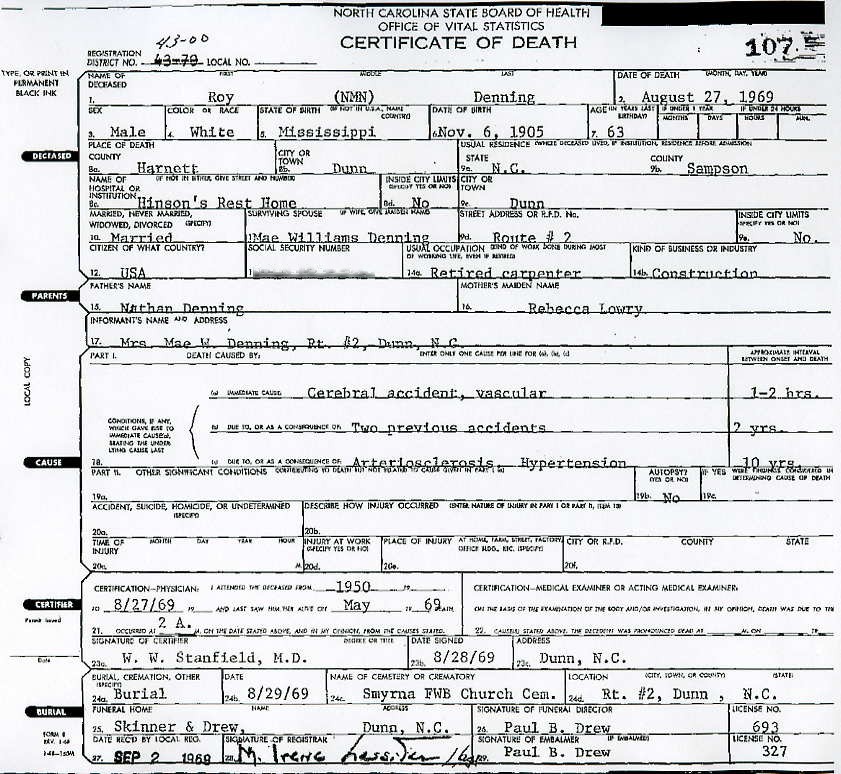 NORTH CAROLINA STATE BOARD OF HEALTH
OFFICE OF VITAL STATISTICS
CERTIFICATE OF DEATH
43-00
REGISTRATION DISTRICT NO. 43-79 LOCAL NO.
107
TYPE, OR PRINT IN PERMANENT BLACK INK
NAME OF DECEASED FIRST MIDDLE LAST DATE OF DEATH (MONTH, DAY, YEAR)
1. Roy (NMN) Denning 2. August 27, 1969
SEX COLOR OR RACE STATE OF BIRTH (IF NOT IN U.S.A., NAME COUNTRY) DATE OF BIRTH AGE (IN YEARS LAST BIRTHDAY) IF UNDER 1 YEAR MONTHS DAYS IF UNDER 24 HOURS HOURS MIN.
3. Male 4. White 5. Mississippi 6. Nov. 6, 1905 7. 63
DECEASED
PLACE OF DEATH USUAL RESIDENCE (WHERE DECEASED LIVED, IF INSTITUTION, RESIDENCE BEFORE ADMISSION)
COUNTY CITY OR TOWN STATE COUNTY
8a. Harnett 8b. Dunn 9a. N.C. 9b. Sampson
NAME OF HOSPITAL OR INSTITUTION (IF NOT IN EITHER, GIVE STREET AND NUMBER) INSIDE CITY LIMITS (SPECIFY YES OR NO) CITY OR TOWN
8c. Hinson's Rest Home 8d. No 9c. Dunn
MARRIED, NEVER MARRIED, WIDOWED, DIVORCED (SPECIFY) SURVIVING SPOUSE (IF WIFE, GIVE MAIDEN NAME) STREET ADDRESS OR R.F.D. No. INSIDE CITY LIMITS (SPECIFY YES OR NO)
10. Married 1 Mae Williams Denning 9d. Route # 2 9e. No.
CITIZEN OF WHAT COUNTRY? SOCIAL SECURITY NUMBER USUAL OCCUPATION (KIND OF WORK DONE DURING MOST OF WORKING LIFE, EVEN IF RETIRED) KIND OF BUSINESS OR INDUSTRY
12. USA 1 14a. Retired carpenter 14b. Construction
PARENTS
FATHER'S NAME MOTHER'S MAIDEN NAME
15. Nathan Denning 16. Rebecca Lowry
INFORMANT'S NAME AND ADDRESS
17. Mrs. Mae W. Denning, Rt. #2, Dunn, N.C.
LOCAL COPY
PART I. DEATH CAUSED BY: ENTER ONLY ONE CAUSE PER LINE FOR (a), (b), (c) APPROXIMATE INTERVAL BETWEEN ONSET AND DEATH
(a) IMMEDIATE CAUSE: Cerebral accident, vascular 1-2 hrs.
CONDITIONS, IF ANY, WHICH GAVE RISE TO IMMEDIATE CAUSE(a), STATING THE UNDERLYING CAUSE LAST
(b) DUE TO, OR AS A CONSEQUENCE OF: Two previous accidents 2 yrs.
CAUSE
18. (c) DUE TO, OR AS A CONSEQUENCE OF: Arteriosclerosis Hypertension 10 yrs.
PART II. OTHER SIGNIFICANT CONDITIONS CONTRIBUTING TO DEATH BUT NOT RELATED TO CAUSE GIVEN IN PART I (a) AUTOPSY? (YES OR NO) IF YES WERE FINDINGS CONSIDERED IN DETERMINING CAUSE OF DEATH
19a. 19b. No 19c.
ACCIDENT, SUICIDE, HOMICIDE, OR UNDETERMINED (SPECIFY) DESCRIBE HOW INJURY OCCURRED (ENTER NATURE OF INJURY IN PART I OR PART II, ITEM 18)
20a. 20b.
TIME OF INJURY MONTH DAY YEAR HOUR INJURY AT WORK (SPECIFY YES OR NO) PLACE OF INJURY AT HOME, FARM, STREET, FACTORY, OFFICE BLDG., ETC. (SPECIFY) CITY OR R.F.D. COUNTY STATE
20c. M. 20d. 20e. 20f.
CERTIFICATION-PHYSICIAN: I ATTENDED THE DECEASED FROM 1950 19 CERTIFICATION-MEDICAL EXAMINER OR ACTING MEDICAL EXAMINER:
CERTIFIER
TO 8/27/69 19 AND LAST SAW HIM/HER ALIVE ON May 19 69. ON THE BASIS OF THE EXAMINATION OF THE BODY AND/OR INVESTIGATION, IN MY OPINION, DEATH WAS DUE TO THE
Permit issued
21. OCCURRED AT 2 A. M. ON THE DATE STATED ABOVE, AND IN MY OPINION, FROM THE CAUSES STATED. 22. CAUSE(S) STATED ABOVE. THE DECEDENT WAS PRONOUNCED DEAD AT M. ON 19
SIGNATURE OF CERTIFIER DEGREE OR TITLE DATE SIGNED ADDRESS
Date
23a. W. W. Stanfield, M.D. 23b. 8/28/69 23c. Dunn, N.C.
BURIAL, CREMATION, OTHER (SPECIFY) DATE NAME OF CEMETERY OR CREMATORY LOCATION (CITY, TOWN, OR COUNTY) (STATE)
24a. Burial 24b. 8/29/69 24c. Smyrna FWB Church Cem. 24d. Rt. #2, Dunn , N.C.
BURIAL
FUNERAL HOME NAME ADDRESS SIGNATURE OF FUNERAL DIRECTOR LICENSE NO.
25. Skinner & Drew, Dunn, N.C. 26. Paul B. Drew 693
FORM 8
REV. 1-68
DATE REC'D BY LOCAL REG. SIGNATURE OF REGISTRAR SIGNATURE OF EMBALMER (IF EMBALMED) LICENSE NO.
27. SEP 2 1969 28. M. Irene Lassiter 29. Paul B. Drew 327